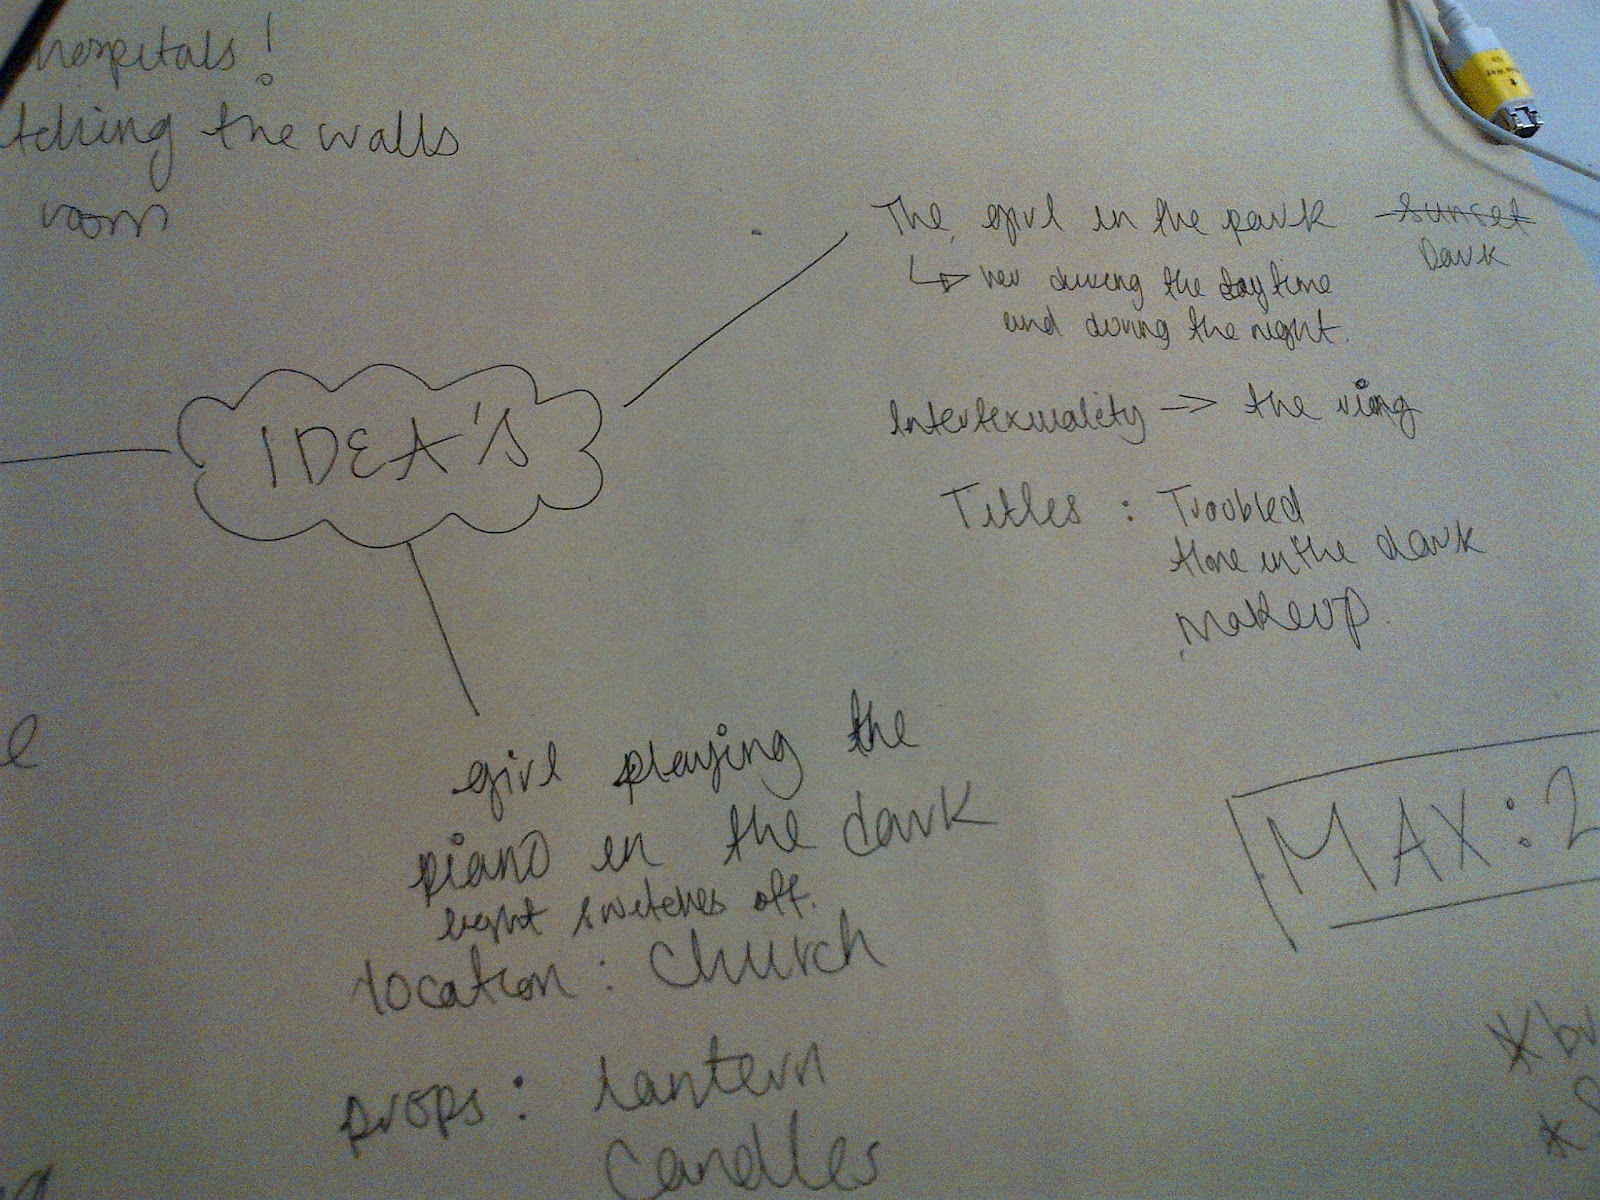 hospitals!
tching the walls
room
The girl in the park sunset
Dark
her during the daytime
and during the night.
IDEA's
Intertexuality → the ring
Titles : Troubled
Alone in the dark
Makeup.
e
girl playing the
piano in the dark
light switches off.
location : Church
MAX: 2
props : lantern
Candles
* br
*